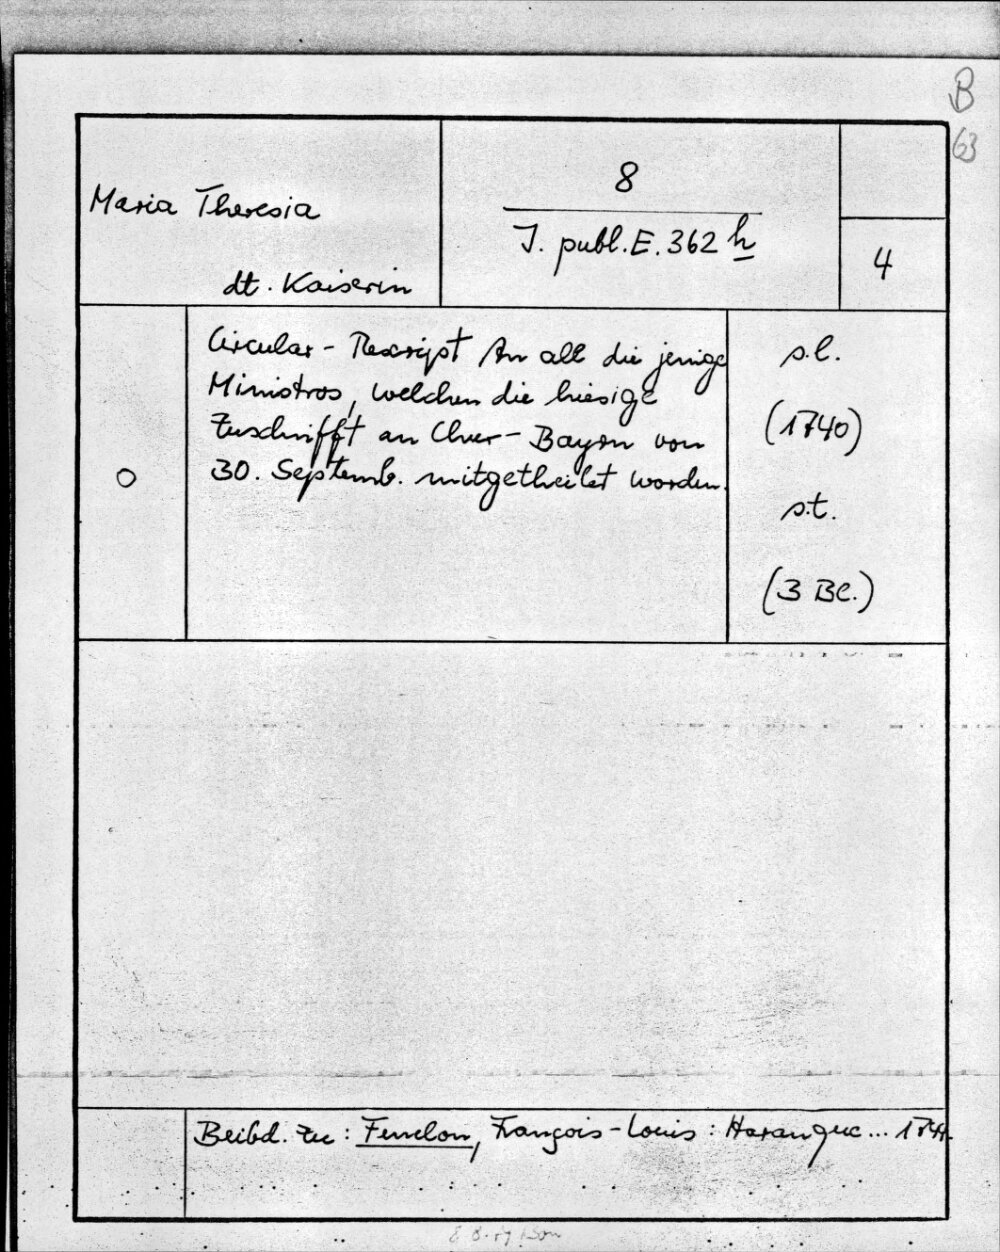 B
63
Maria Theresia
dt. Kaiserin
8
J. publ. E. 362 h
4
Circular-Rescript An all die jenige
Ministros, welchen die hiesige
Zuschrifft an Chur-Bayrn von
30. Septemb. mitgetheilet worden.
s.l.
(1740)
s.t.
(3 Bl.)
Beibd. zu: Fenelon, François-Louis: Harangue... 1741.